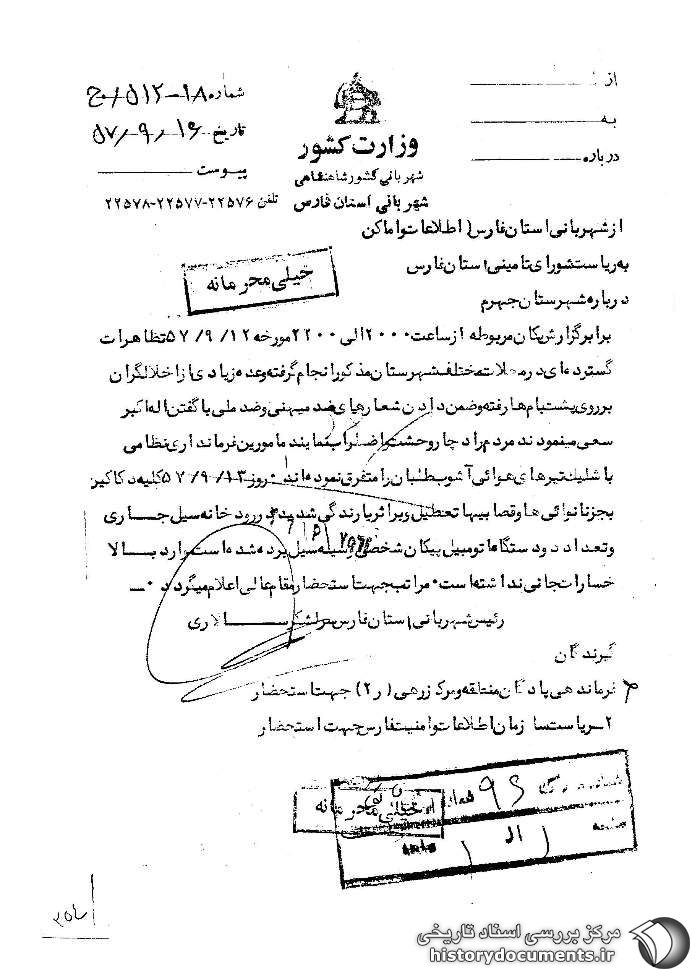 شماره ۱۸-۵۱۲
از
تاریخ ۵۷/۹/۱۶
به
وزارت کشور
درباره
پیوست
شهربانی کشور شاهنشاهی
شهربانی استان فارس
تلفن ۲۲۵۷۶-۲۲۵۷۷-۲۲۵۷۸
از شهربانی استان فارس ( اطلاعات و اماکن
به ریاست شورای تامینی استان فارس
خیلی محرمانه
درباره شهرستان جهرم
برابر گزارش یکان مربوطه از ساعت ۲۰۰۰ الی ۲۲۰۰ مورخه ۵۷/۹/۱۲ تظاهرات
گسترده ای در محلات مختلف شهرستان مذکور انجام گرفته و عده زیادی از اخلالگران
بر روی پشت بام ها رفته و ضمن دادن شعارهای ضد میهنی و ضد ملی با گفتن اله اکبر
سعی مینمودند مردم را دچار وحشت و اضطراب نمایند مامورین فرمانداری نظامی
با شلیک تیرهای هوائی آشوب طلبان را متفرق نموده اند ۰ روز ۵۷/۹/۱۳ کلیه دکاکین
بجز نانوائی ها و قصابیها تعطیل و بر اثر بارندگی شدید در رودخانه سیل جاری
و تعداد دو دستگاه اتومبیل پیکان شخصی وسیله سیل برده شده است وارد بالا
خسارات جانی نداشته است ۰ مراتب جهت استحضار مقام عالی اعلام میگردد ۰ــ
رئیس شهربانی استان فارس سرلشکر سالاری
گیرندگان
فرماندهی پادگان منطقه و مرکز زرهی ( ر ۲ ) جهت استحضار
۲ــ ریاست سازمان اطلاعات و امنیت فارس جهت استحضار
خیلی محرمانه
مرکز بررسی اسناد تاریخی
historydocuments.ir